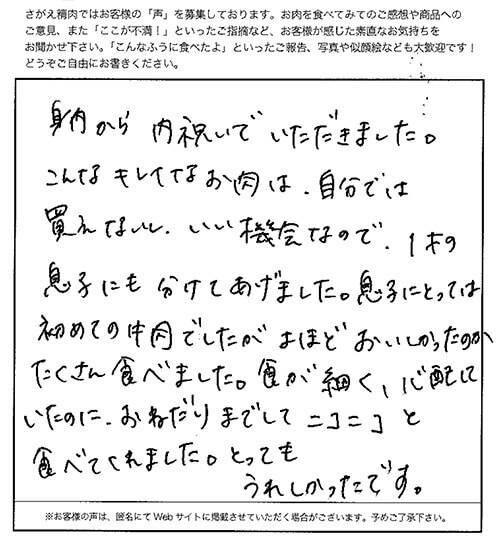 さがえ精肉ではお客様の「声」を募集しております。お肉を食べてみてのご感想や商品への
ご意見、また「ここが不満！」といったご指摘など、お客様が感じた素直なお気持ちを
お聞かせ下さい。「こんなふうに食べたよ」といったご報告、写真や似顔絵なども大歓迎です！
どうぞご自由にお書きください。
身内から 内祝いで いただきました。
こんな キレイなお肉は、自分では
買えないし、いい機会なので、1才の
息子にも 分けてあげました。息子にとっては
初めての牛肉でしたが よほど おいしかったのか
たくさん食べました。食が 細く、心配して
いたのに、おねだりまでして ニコニコ と
食べてくれました。とっても
うれしかったです。
※お客様の声は、匿名にてWebサイトに掲載させていただく場合がございます。予めご了承下さい。